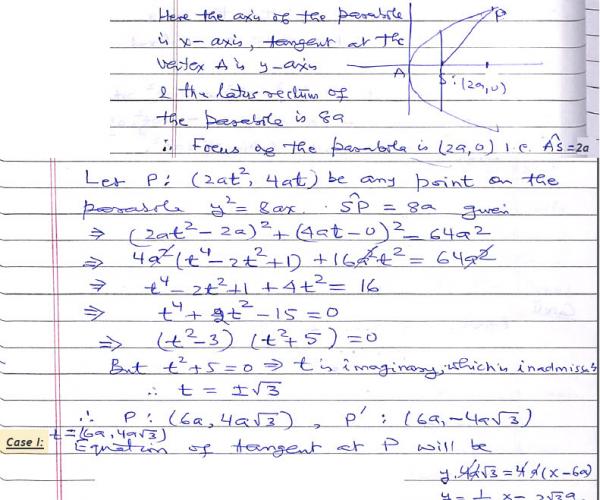 Here the axis of the parabola
is x-axis, tangent at the
vertex A is y-axis
& the latus rectum of
the parabola is 8a
P
A
S:(2a,0)
∴ Focus of the parabola is (2a,0) i.e. AS=2a
Let P: (2at², 4at) be any point on the
parabola y²=8ax. SP = 8a given
⇒ (2at²-2a)²+(4at-0)²=64a²
⇒ 4a²(t⁴-2t²+1)+16a²t²=64a²
⇒ t⁴-2t²+1+4t²=16
⇒ t⁴+2t²-15=0
⇒ (t²-3)(t²+5)=0
But t²+5=0 ⇒ t is imaginary, which is
∴ t = ±√3
∴ P: (6a, 4a√3), P': (6a, -4a√3)
Case I: t=(6a, 4a√3)
Equation of tangent at P will be
y.4a√3=4a(x-6a)